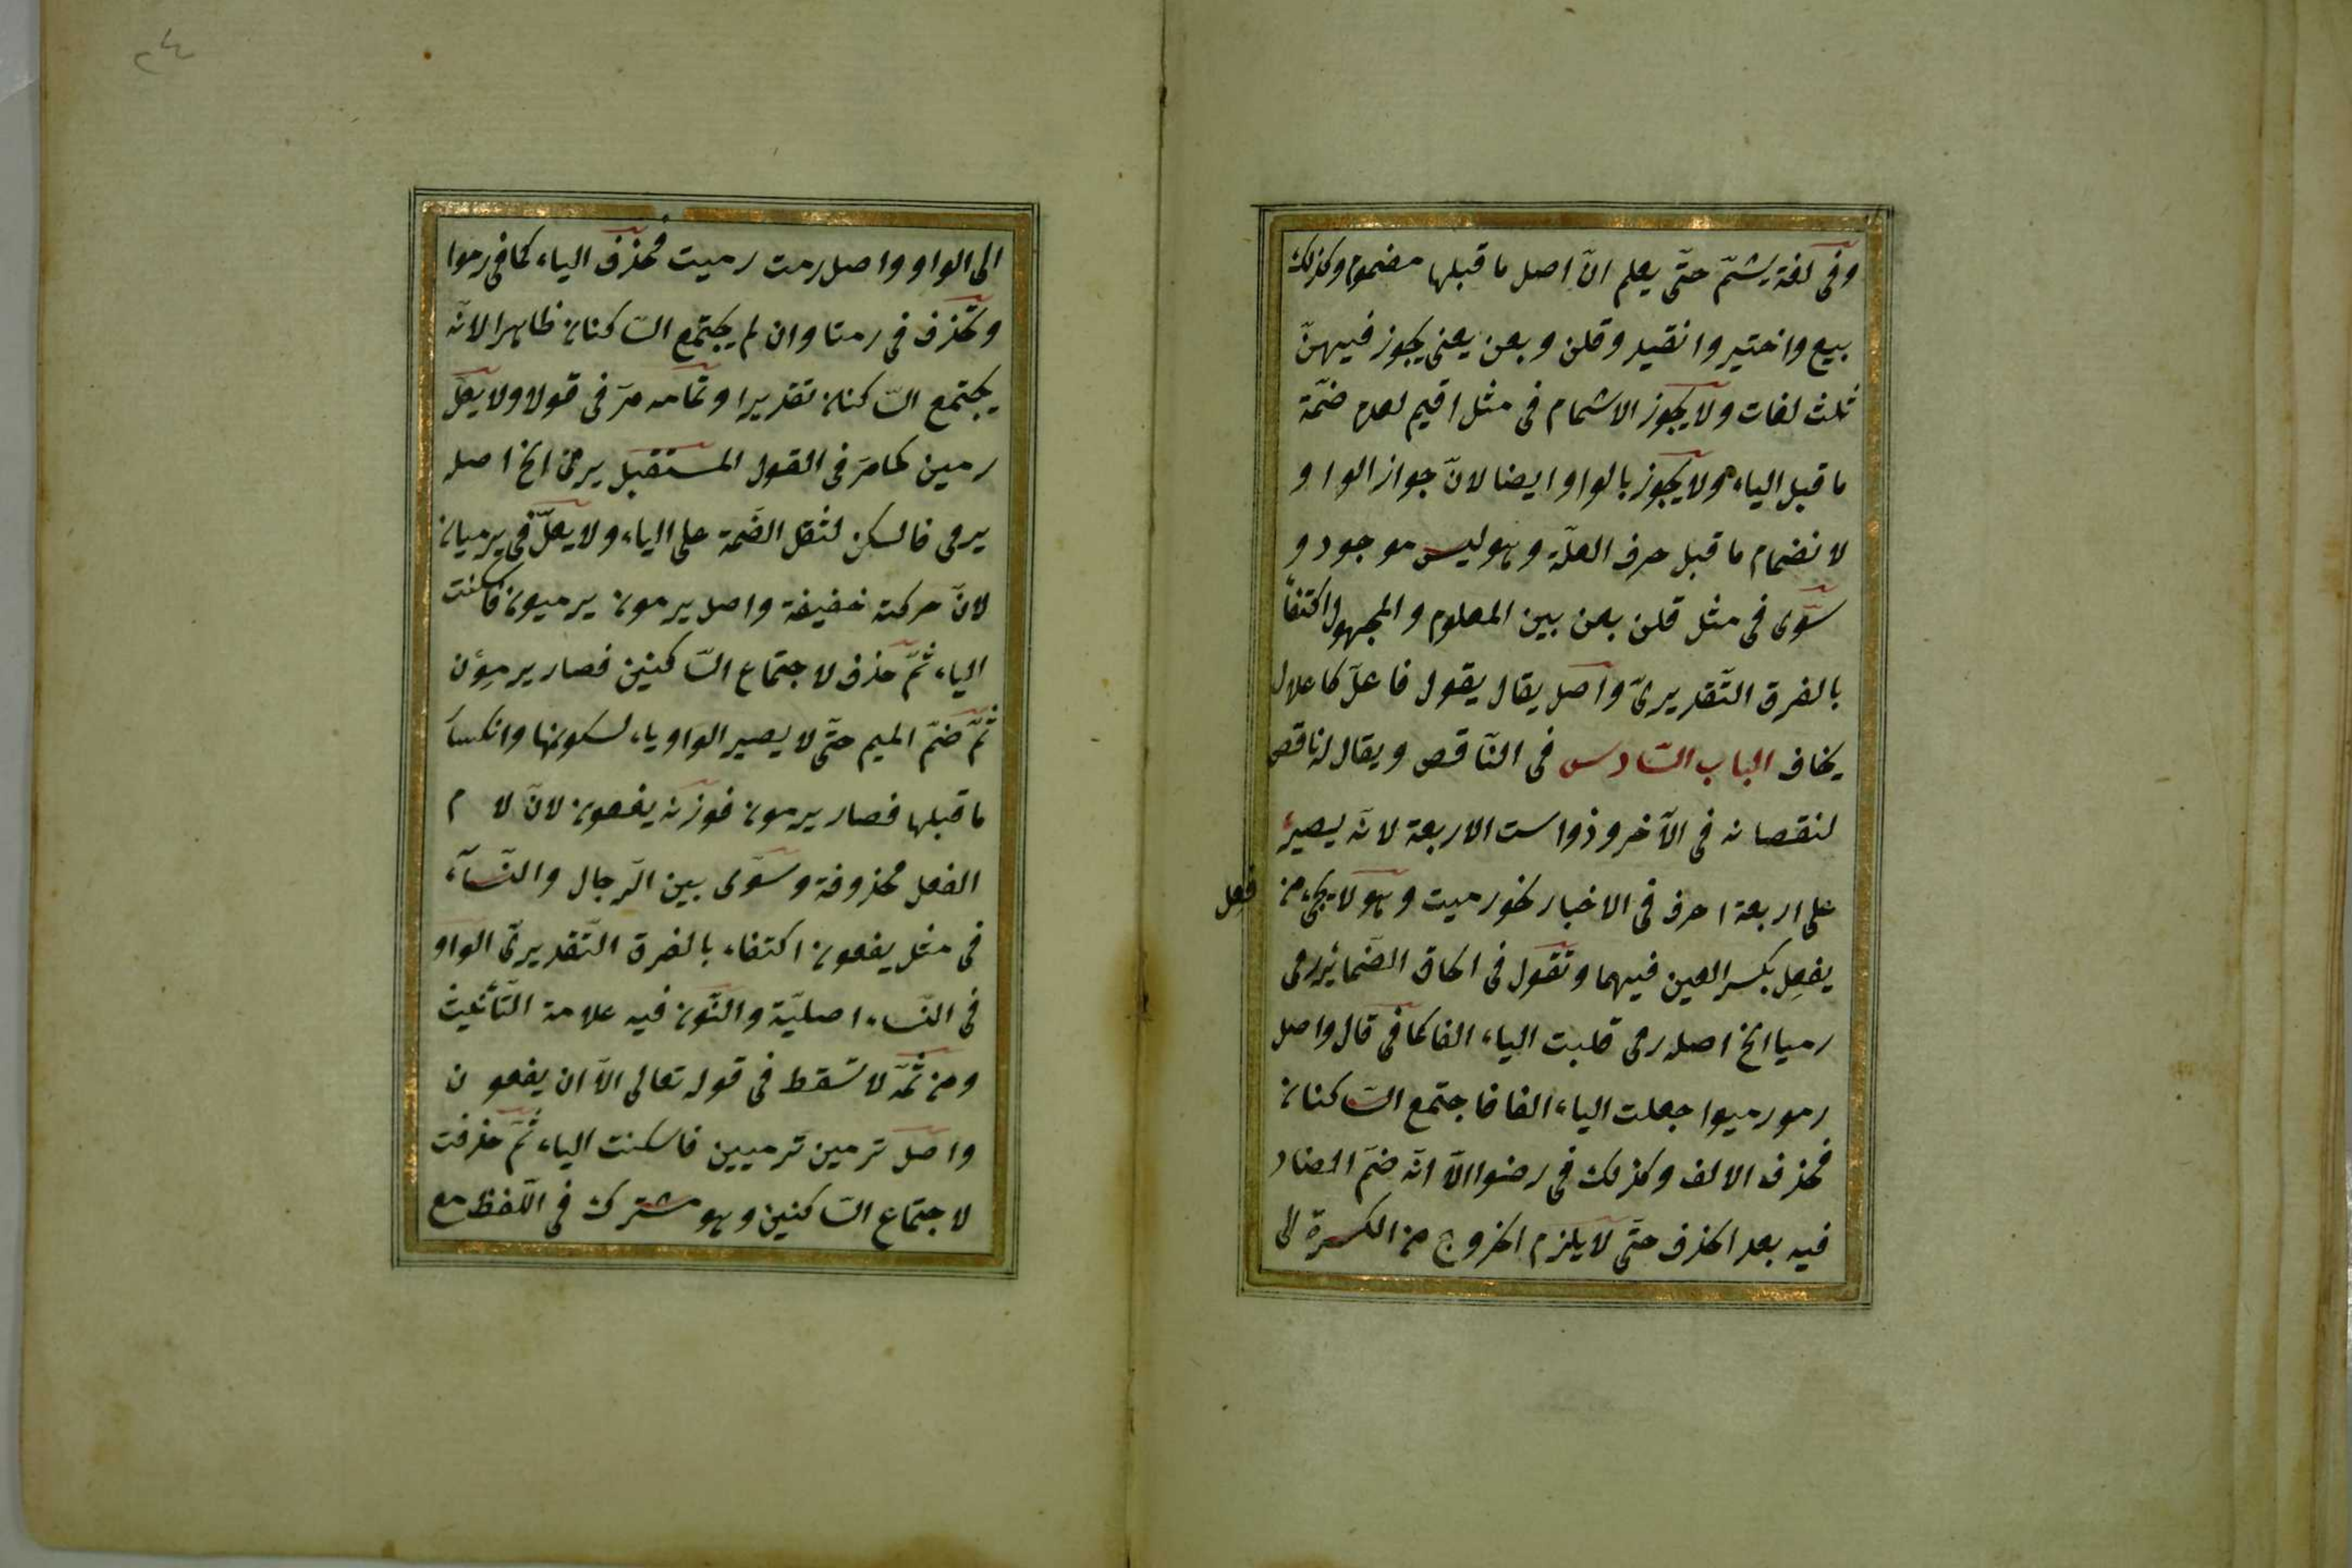 وفى لغة يشمّ حتّى يعلم انّ اصل ما قبلها مضموم وكذلك
بيع واختير وانقيد وقلن وبعن يعنى يجوز فيهنّ
ثلث لغات ولا يجوز الاشمام فى مثل اقيم لعدم ضمّة
ما قبل الياء ولا يجوز بالواو ايضا لانّ جواز الواو
لانضمام ما قبل حرف العلّة وهو ليس موجود و
سوّى فى مثل قلن بعن بين المعلوم والمجهول اكتفاً
بالفرق التّقديرىّ واصل يقال يقول فاعلّ كاعلال
يخاف الباب السّادس فى النّاقص ويقال له ناقص
لنقصانه فى الآخر وذوات الاربعة لانّه يصير
على اربعة احرف فى الاخبار نحو رميت وهو لا يجىء من فعل
يفعِل بكسر العين فيهما وتقول فى الحاق الضّمائر رمى
رميا الخ اصله رمى قلبت الياء الفا كما فى قال واصل
رمو رميوا جعلت الياء الفا فاجتمع السّاكنان
فحذف الالف وكذلك فى رضوا الّا انّه ضمّ الضاد
فيه بعد الحذف حتّى لا يلزم الخروج من الكسرة الى
٢٤
الى الواو واصل رمت رميت فحذف الياء كما فى رموا
وتحذف فى رمتا وان لم يجتمع السّاكنان ظاهرا لانّه
يجتمع السّاكنان تقديرا وتمامه مرّ فى قولا ولا يعلّ
رمين كما مرّ فى القول المستقبل يرمى الخ اصله
يرمى فاسكن لثقل الضّمة على الياء ولا يعلّ فى يرميان
لانّ حركته خفيفة واصل يرمون يرميون فاسكنت
الياء ثمّ حذف لاجتماع السّاكنين فصار يرمِوْن
ثمّ ضمّ الميم حتّى لا يصير الواو ياء لسكونها وانكسا
ما قبلها فصار يرمون فوزنه يفعون لانّ لا م
الفعل محذوفة وسوّى بين الرّجال والنّسآء
فى مثل يعفون اكتفاء بالفرق التّقديرىّ الواو
فى النّساء اصليّة والنّون فيه علامة التّأنيث
ومن ثمّه لا تسقط فى قوله تعالى الّا ان يعفو ن
واصل ترمين ترميين فاسكنت الياء ثمّ حذفت
لاجتماع السّاكنين وهو مشترك فى اللّفظ مع